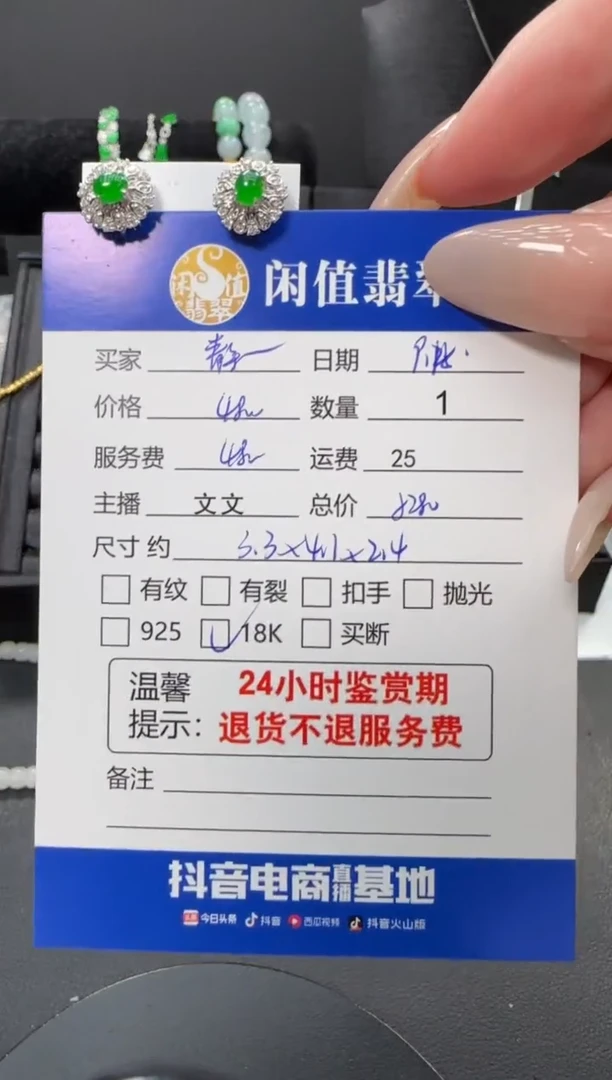 闲值翡翠
闲值
翡翠
买家 静 日期
价格 数量 1
服务费 运费 25
主播 文文 总价
尺寸 约 5.3×4.1×2.4
有纹 有裂 扣手 抛光
925 18K 买断
温馨 24小时鉴赏期
提示: 退货不退服务费
备注
抖音电商直播基地
头条 今日头条 抖音 西瓜视频 抖音火山版